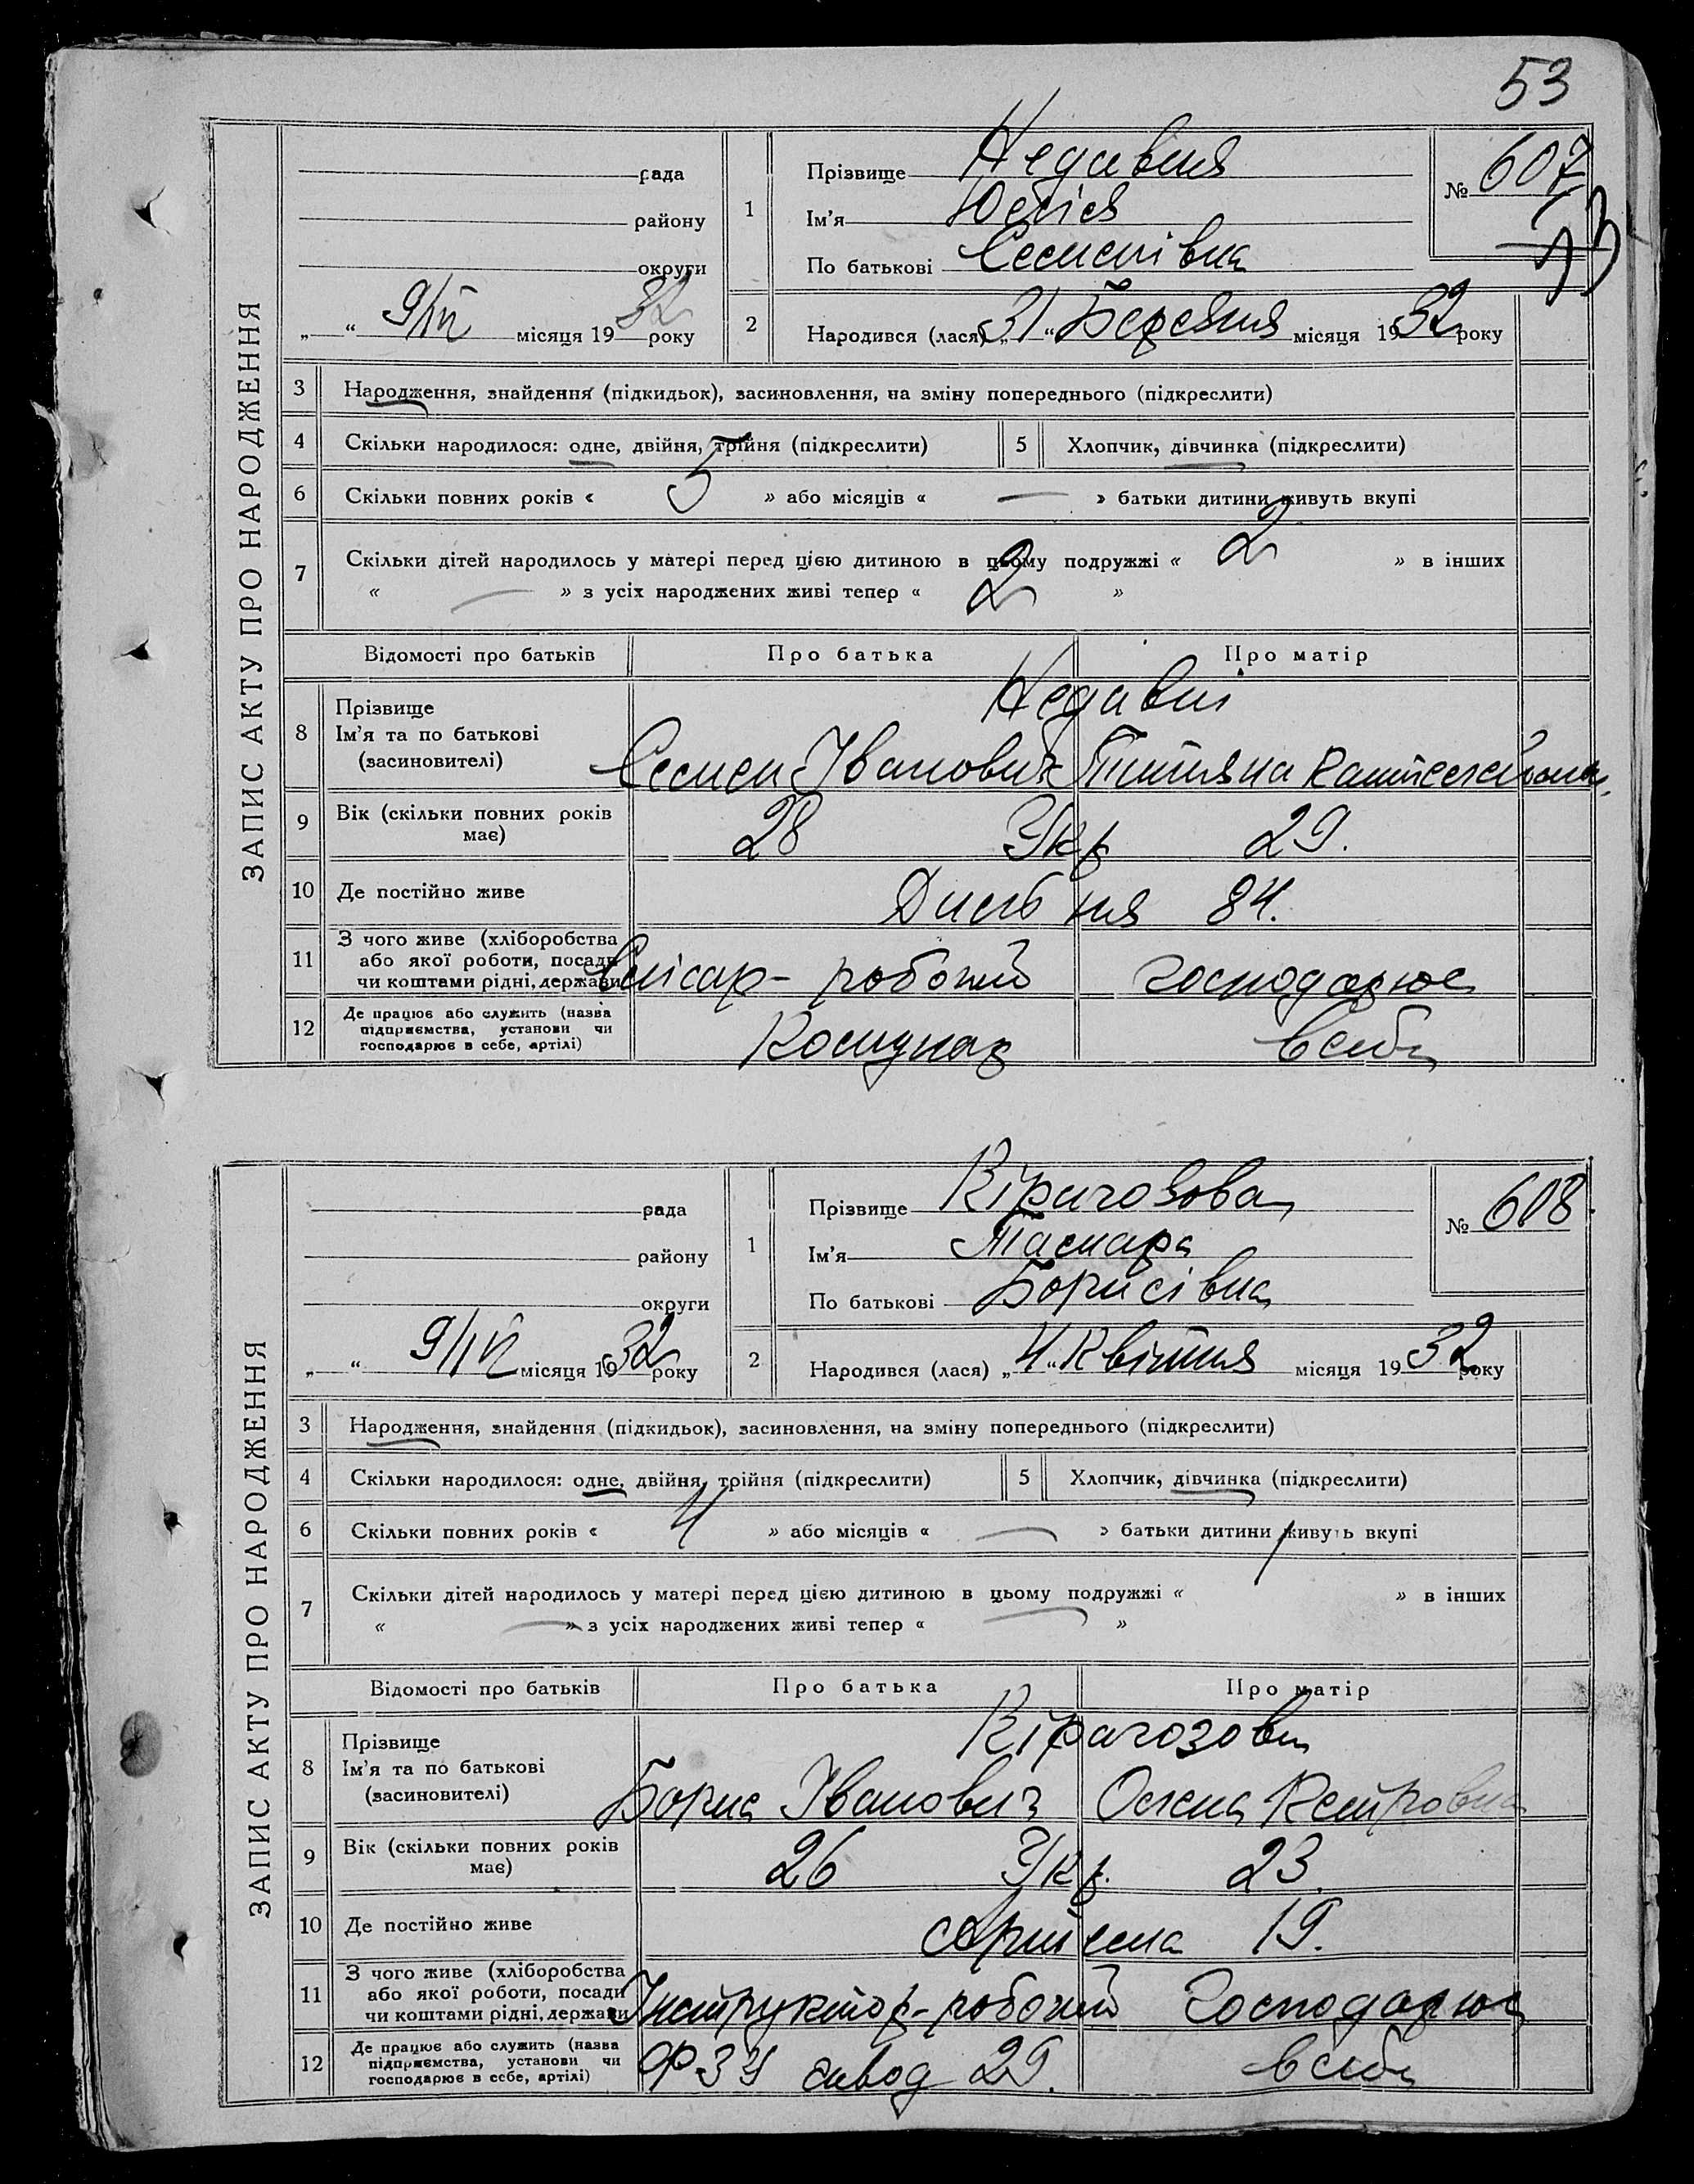 53
ЗАПИС АКТУ ПРО НАРОДЖЕННЯ
рада
району
округи
„ “ 9/IV місяця 1932 року
1
Прізвище Недавня
Ім’я
По батькові Семенівна
№ 607
2
Народився (лася) „31“ Березня місяця 1932 року
3 Народження, знайдення (підкидьок), засиновлення, на зміну попереднього (підкреслити)
4 Скільки народилося: одне, двійня, трійня (підкреслити) 5 Хлопчик, дівчинка (підкреслити)
6 Скільки повних років « 5 » або місяців « — » батьки дитини живуть вкупі
7 Скільки дітей народилось у матері перед цією дитиною в цьому подружжі « 2 » в інших
« — » з усіх народжених живі тепер « 2 »
Відомості про батьків Про батька Про матір
8 Прізвище
Ім’я та по батькові
(засиновителі)
Недавні
Семен Іванович Титяна
9 Вік (скільки повних років має) 28 Укр 29.
10 Де постійно живе 84.
11 З чого живе (хліборобства або якої роботи, посади чи коштами рідні, держави) Слісар - робочий господарює
12 Де працює або служить (назва підприємства, установи чи господарює в себе, артілі) Комунар в себе
ЗАПИС АКТУ ПРО НАРОДЖЕННЯ
рада
району
округи
„ “ 9/IV місяця 1932 року
1
Прізвище Кірагозова
Ім’я Тамара
По батькові Борисівна
№ 608
2
Народився (лася) „4“ Квітня місяця 1932 року
3 Народження, знайдення (підкидьок), засиновлення, на зміну попереднього (підкреслити)
4 Скільки народилося: одне, двійня, трійня (підкреслити) 5 Хлопчик, дівчинка (підкреслити)
6 Скільки повних років « 4 » або місяців « — » батьки дитини живуть вкупі
7 Скільки дітей народилось у матері перед цією дитиною в цьому подружжі « » в інших
« — » з усіх народжених живі тепер « — »
Відомості про батьків Про батька Про матір
8 Прізвище
Ім’я та по батькові
(засиновителі)
Кірагозови
Борис Іванович Олена Петровна
9 Вік (скільки повних років має) 26 Укр. 23.
10 Де постійно живе Артема 19.
11 З чого живе (хліборобства або якої роботи, посади чи коштами рідні, держави) Інструктор - робочий Господарює
12 Де працює або служить (назва підприємства, установи чи господарює в себе, артілі) ФЗУ завод 29. в себе